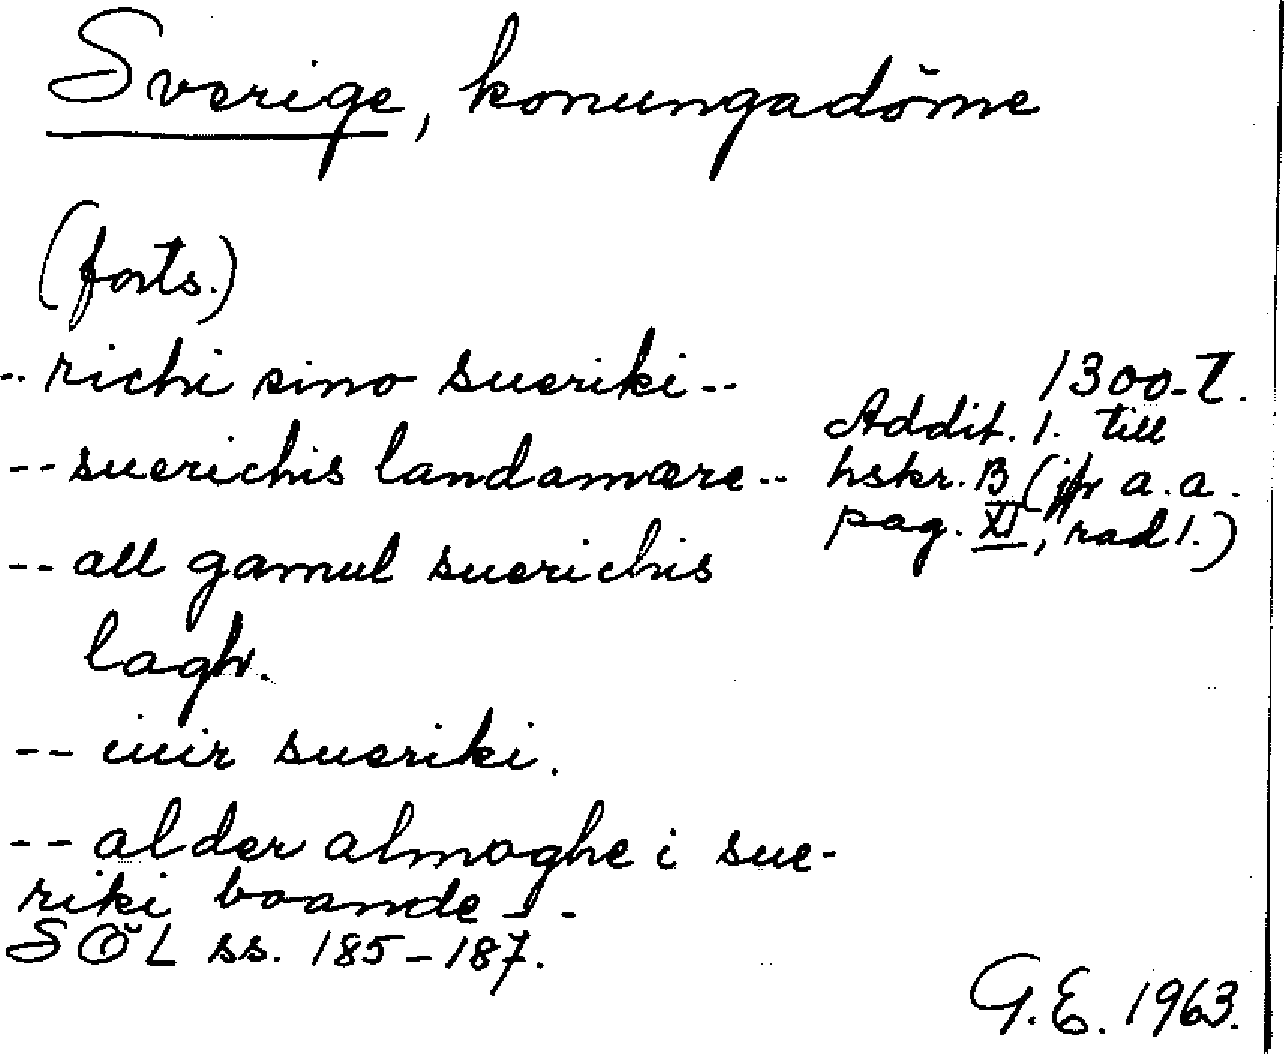 Sverige, konungadöme
(forts.)
-- richi sino sueriki --
1300-t.
Addit. 1. till
hskr. B (jfr a.a.
pag. XI, rad 1.)
-- suerichis landamære --
-- all gamul suerichis
lagh.
-- iuir sueriki.
-- alder almoghe i sue-
riki boande --
SÖL ss. 185-187.
G.E. 1963.